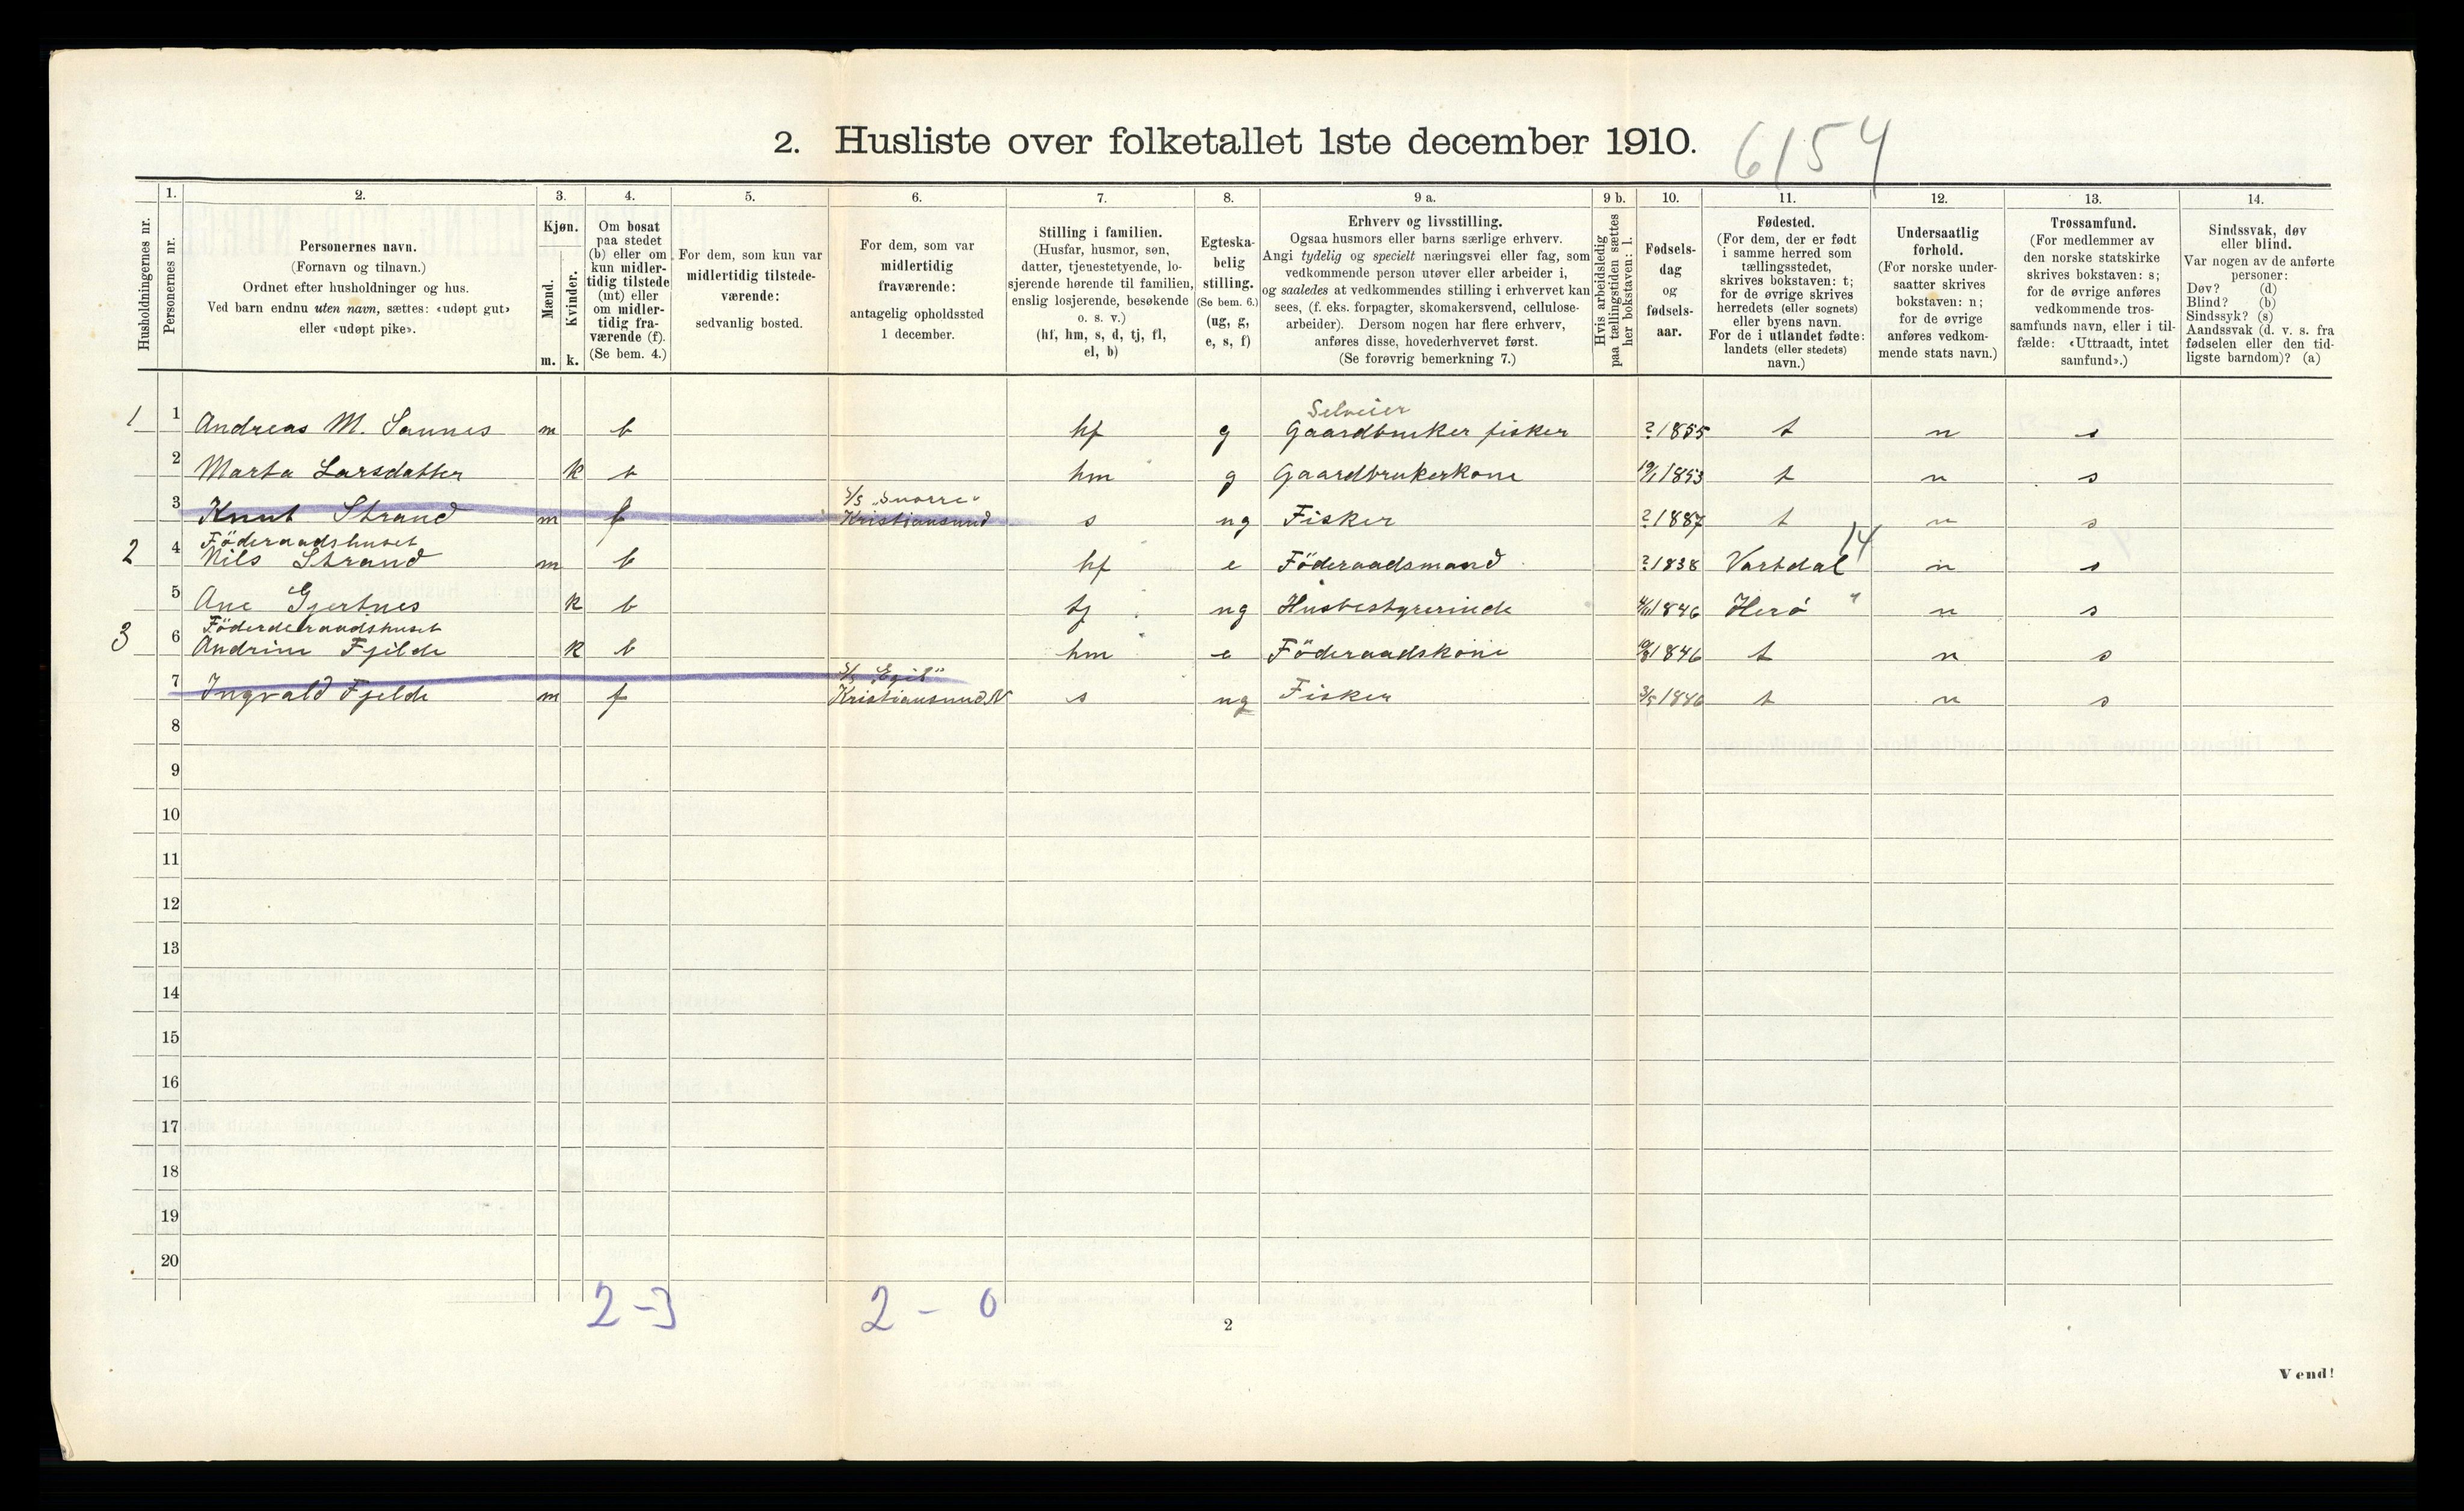 2. Husliste over folketallet 1ste december 1910. 6154
Husholdningernes nr.
1. Personernes nr.
2. Personernes navn.
(Fornavn og tilnavn.)
Ordnet efter husholdninger og hus.
Ved barn endnu uten navn, sættes: «udøpt gut»
eller «udøpt pike».
3. Kjøn.
Mænd. m.
Kvinder. k.
4. Om bosat
paa stedet
(b) eller om
kun midler-
tidig tilstede
(mt) eller
om midler-
tidig fra-
værende (f).
(Se bem. 4.)
5. For dem, som kun var
midlertidig tilstede-
værende:
sedvanlig bosted.
6. For dem, som var
midlertidig
fraværende:
antagelig opholdssted
1 december.
7. Stilling i familien.
(Husfar, husmor, søn,
datter, tjenestetyende, lo-
sjerende hørende til familien,
enslig losjerende, besøkende
o. s. v.)
(hf, hm, s, d, tj, fl,
el, b)
8. Egteska-
belig
stilling.
(Se bem. 6.)
(ug, g,
e, s, f)
9 a. Erhverv og livsstilling.
Ogsaa husmors eller barns særlige erhverv.
Angi tydelig og specielt næringsvei eller fag, som
vedkommende person utøver eller arbeider i,
og saaledes at vedkommendes stilling i erhvervet kan
sees, (f. eks. forpagter, skomakersvend, cellulose-
arbeider). Dersom nogen har flere erhverv,
anføres disse, hovederhvervet først.
(Se forøvrig bemerkning 7.)
9 b. Hvis arbeidsledig
paa tællingstiden sættes
her bokstaven: l.
10. Fødsels-
dag
og
fødsels-
aar.
11. Fødested.
(For dem, der er født
i samme herred som
tællingsstedet,
skrives bokstaven: t;
for de øvrige skrives
herredets (eller sognets)
eller byens navn.
For de i utlandet fødte:
landets (eller stedets)
navn.)
12. Undersaatlig
forhold.
(For norske under-
saatter skrives
bokstaven: n;
for de øvrige
anføres vedkom-
mende stats navn.)
13. Trossamfund.
(For medlemmer av
den norske statskirke
skrives bokstaven: s;
for de øvrige anføres
vedkommende tros-
samfunds navn, eller i til-
fælde: «Uttraadt, intet
samfund».)
14. Sindssvak, døv
eller blind.
Var nogen av de anførte
personer:
Døv? (d)
Blind? (b)
Sindssyk? (s)
Aandssvak (d. v. s. fra
fødselen eller den tid-
ligste barndom)? (a)
Selveier
1 1 Andreas M. Saunes m b hf g Gaardbruker fisker ? 1855 t n s
2 Marta Larsdatter k b hm g Gaardbrukerkone 1853 t n s
S/S "Snorre"
3 Knut Strand m f Kristiansund s ug Fisker ? 1887 t n s
Föderaadshuset 14
2 4 Nils Strand m b hf e Föderaadsmand ? 1838 Vartdal n s
5 Ane Gjertnes k b tj ug Husbestyrerinde 1846 Herö " n s
Föderderaadshuset
3 6 Andrine Fjelde k b hm e Föderaadskone 1846 t n s
S/S "Egil"
7 Ingvald Fjelde m f Kristiansund N s ug Fisker 3/5 1886 t n s
8
9
10
11
12
13
14
15
16
17
18
19
20
2-3 2 - 0
2
Vend!